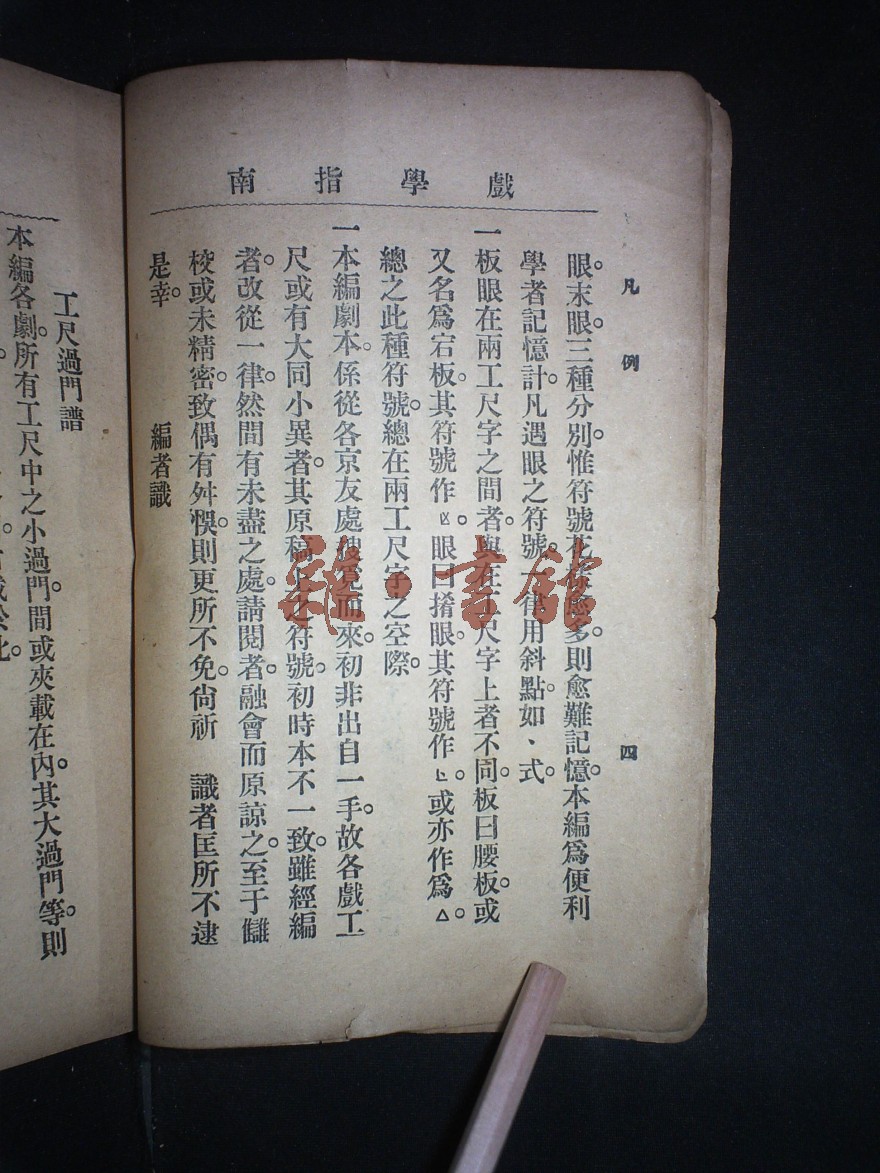 戲學指南
凡例 四
眼。末眼。三種分別。惟符號花樣愈多。則愈難記憶。本編爲便利
學者記憶計。凡遇眼之符號。一律用斜點。如、式
一板眼在兩工尺字之間者。與在工尺字上者不同。板曰腰板。或
又名爲宕板。其符號作。眼曰揹眼。其符號作。或亦作爲△。
總之此種符號。總在兩工尺字之空際。
一本編劇本。係從各京友處搜覓而來。初非出自一手。故各戲工
尺或有大同小異者。其原稿上之符號。初時本不一致。雖經編
者。改從一律。然間有未盡之處。請閱者。融會而原諒之。至于讎
校或未精密。致偶有舛悞。則更所不免。尙祈 識者匡所不逮
是幸。 編者識
工尺過門譜
本編各劇。所有工尺中之小過門。間或夾載在內。其大過門等。則
於此。
雜·書館